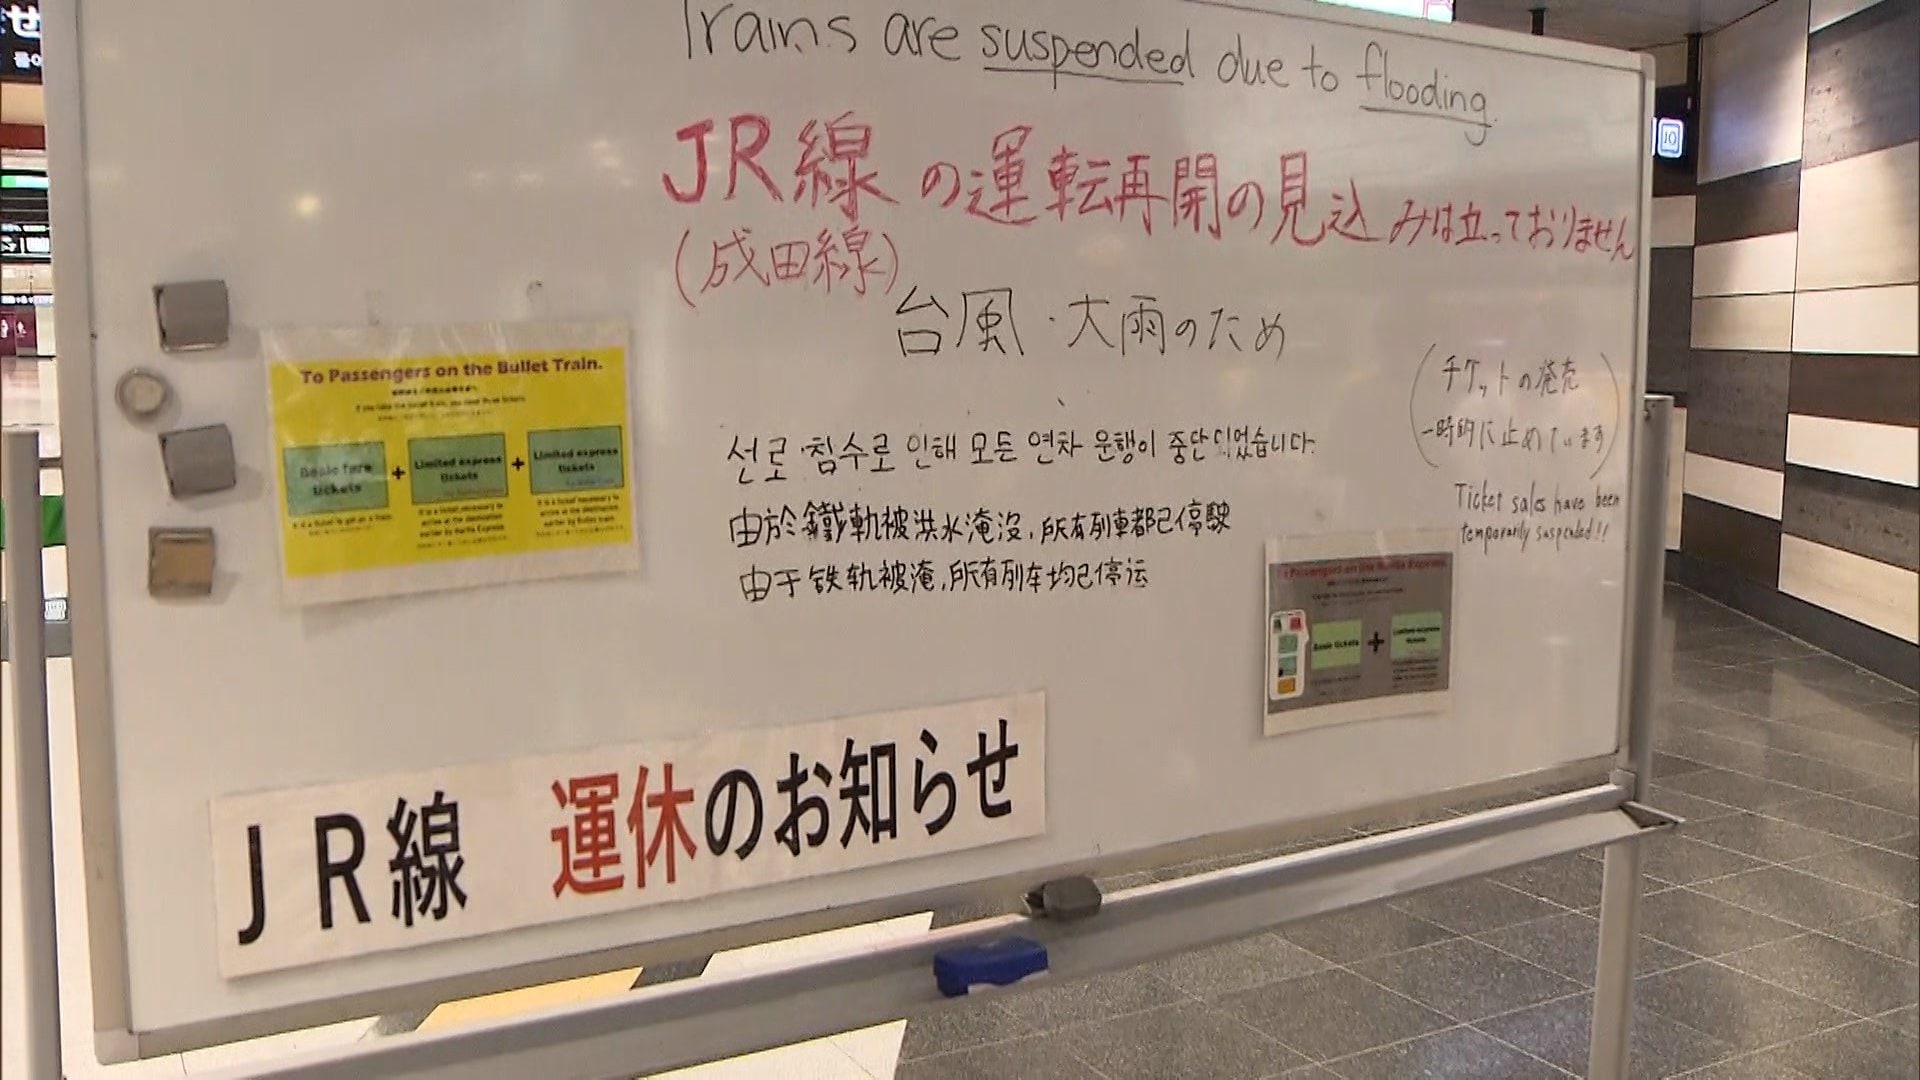 Trains are suspended due to flooding.
JR線の運転再開の見込みは立っておりません
(成田線)
台風・大雨のため
(チケットの発売
一時的に止めています)
Ticket sales have been
temporarily suspended!!
선로 침수로 인해 모든 연차 운행이 중단되었습니다.
由於鐵軌被洪水淹没,所有列車都已停駛
由于铁轨被淹,所有列车均已停运
To Passengers on the Bullet Train.
Basic fare tickets + Limited express tickets + Limited express tickets
To Passengers on the Narita Express.
Basic tickets + Limited express tickets
JR線 運休のお知らせ
せ